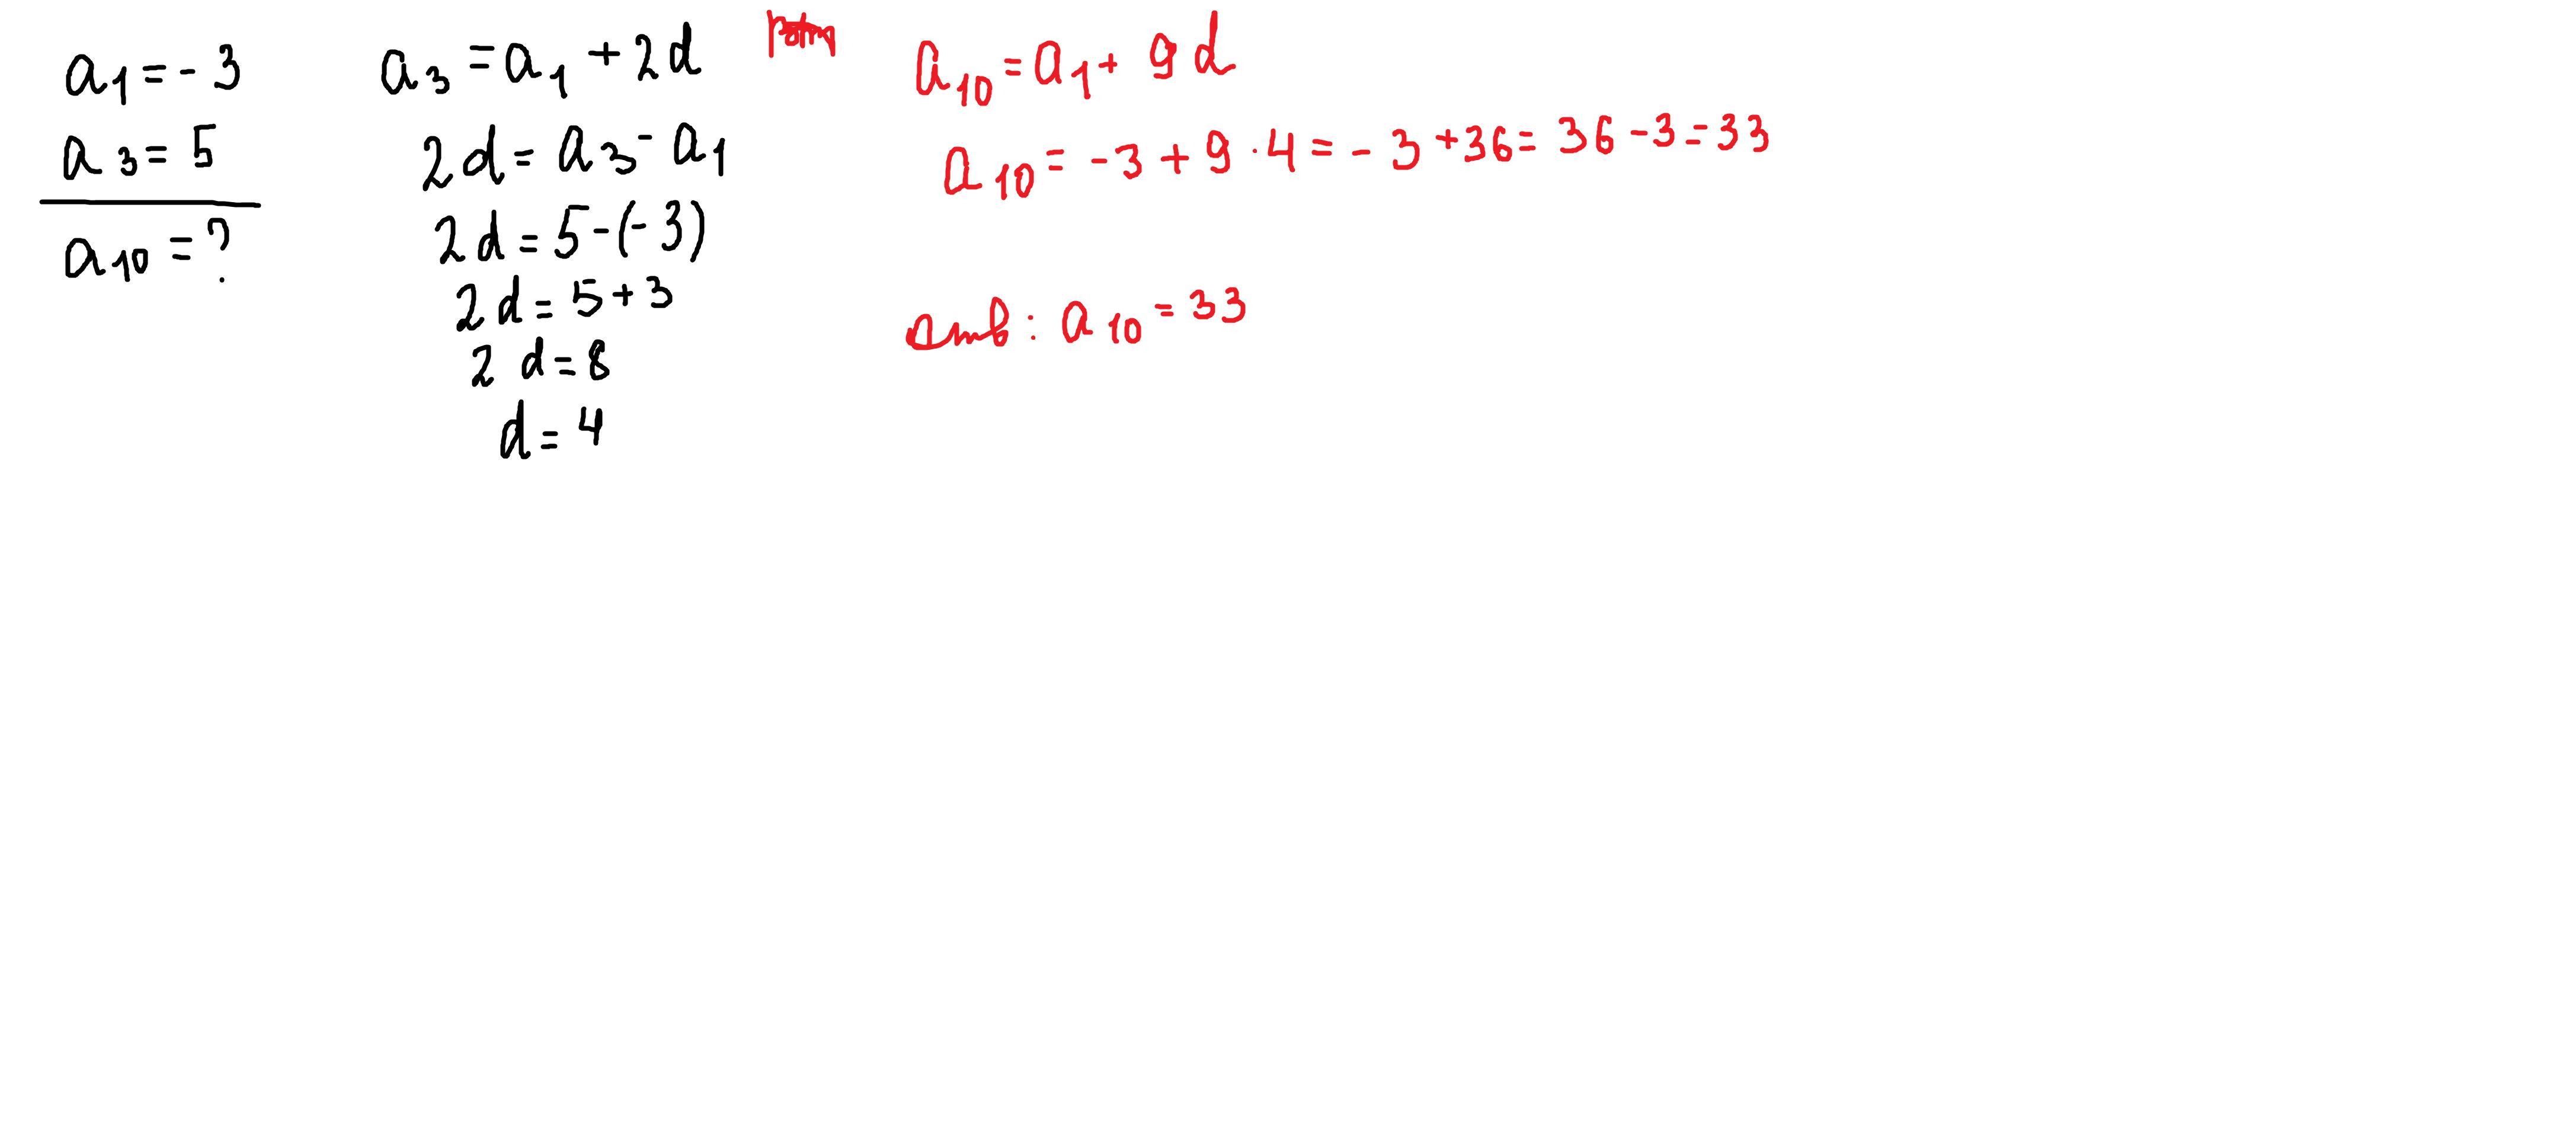 a₁ = - 3
a₃ = 5
a₁₀ = ?
a₃ = a₁ + 2d
2d = a₃ - a₁
2d = 5 - (- 3)
2d = 5 + 3
2 d = 8
d = 4
a₁₀ = a₁ + 9d
a₁₀ = -3 + 9 · 4 = - 3 + 36 = 36 - 3 = 33
Отв : a₁₀ = 33